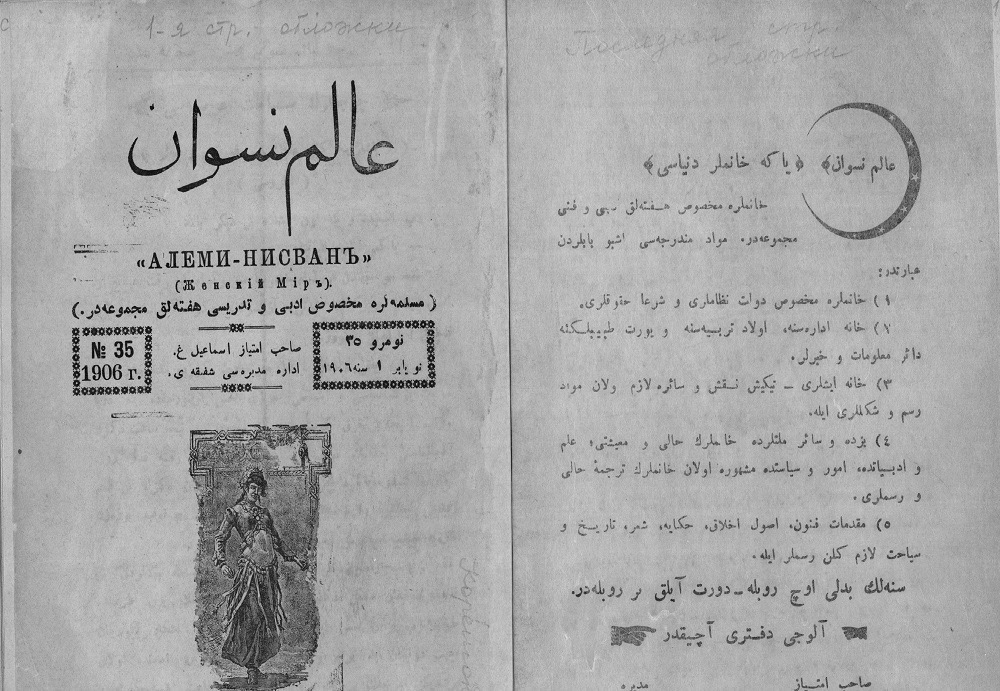 1-я стр. обложки
عالم نسوان
«АЛЕМИ-НИСВАНЪ»
(Женскій Міръ).
( مسلمه‌لره مخصوص ادبی و تدریسی هفته‌لق مجموعه‌در. )
№ 35
1906 г.
صاحب امتیاز اسماعیل غ.
اداره مدیره‌سی شفیقه ی.
نومرو ٣٥
نویابر ١ سنه ١٩٠٦
Последняя стр.
обложки
عالم نسوان﴾ ﴿یا که خانملر دنیاسی﴾
خانملره مخصوص هفته‌لق ادبی و فنی
مجموعه‌در. مواد مندرجه‌سی اشبو بابلردن
عبارتدر:
١) خانملره مخصوص دولت نظاملری و شرعا حقوقلری.
٢) خانه اداره‌سنه، اولاد تربیه‌سنه و یورت طبیبلکنه
دائر معلومات و خبرلر.
٣) خانه ایشلری ــ تیکیش نقش و سائره لازم اولان مواد
رسم و شکللری ایله.
٤) بزده و سائر ملتلرده خانملرك حالی و معیشتی؛ علم
و ادبیاتده، امور و سیاستده مشهوره اولان خانملرك ترجمهٔ حالی
و رسملری.
٥) مقدمات فنون، اصول اخلاق، حکایه، شعر، تاریخ و
سیاحت لازم کلن رسملر ایله.
سنه‌لك بدلی اوچ روبله ــ دورت آیلق بر روبله‌در.
آلوجی دفتری آچیقدر
صاحب امتیاز مدیره